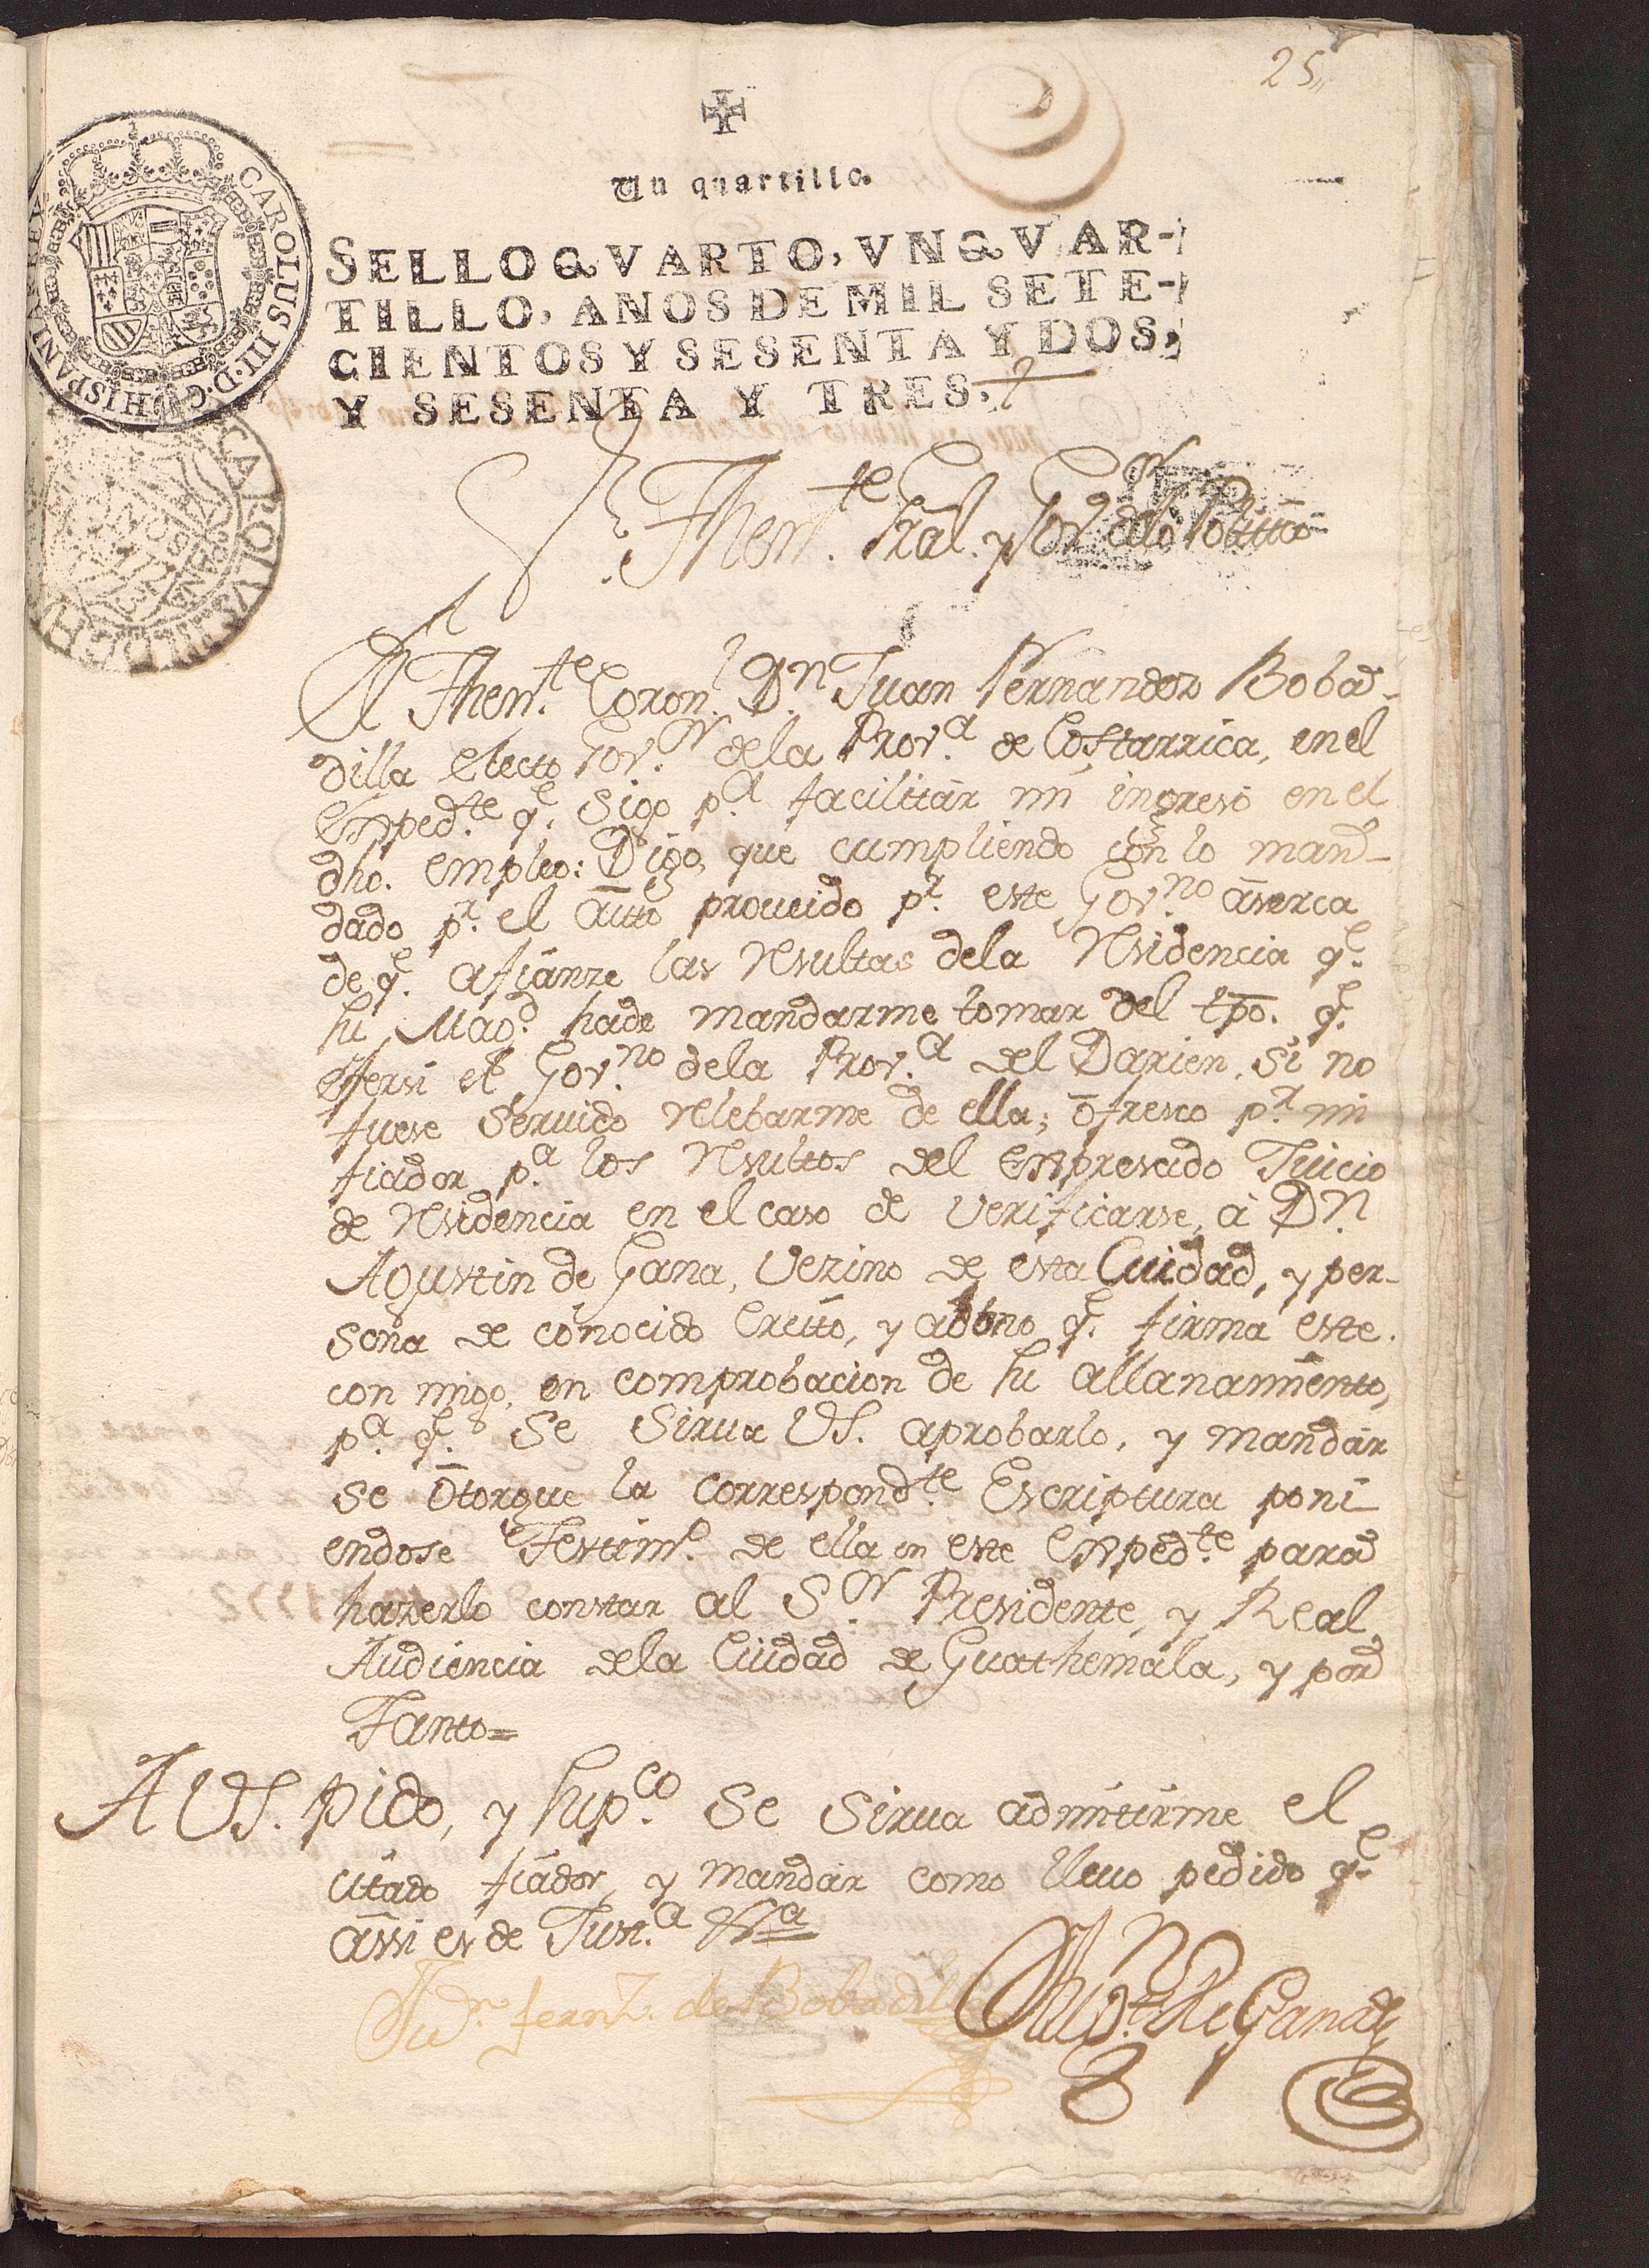 25
Un quartillo.
SELLO QVARTO, VN QVAR-
TILLO, AÑOS DE MIL SETE-
CIENTOS Y SESENTA Y DOS,
Y SESENTA Y TRES.
CAROLUS III. D. G. HISPANIAR. REX
Sr. Thente. Gral. y Govor. delo Politico
El Thente. Coronl. Dn. Juan Fernandez Boba-
dilla electo Govor. dela Prova. de Costarrica, en el
Expedte. qe. sigo pa. facilitar mi ingreso en el
dho. empleo: Digo, que cumpliendo con lo man-
dado pr. el auto proveido pr. este Govno. aserca
de qe. afianze las resultas dela residencia qe.
su Magd. hade mandarme tomar del tpo. qe.
exersi el Govno. dela Prova. del Darien, si no
fuese servido relebarme de ella; ofresco pr. mi
fiador pa. los resultos del expresado Juicio
de residencia en el caso de verificarse, a Dn.
Agustin de Gana, vezino de esta Cuidad, y per-
sona de conocido credito, y abono qe. firma este
con migo, en comprobacion de su allanamiento,
pa. qe. se sirva VS. aprobarlo, y mandar
se otorgue la correspondte. Escriptura poni-
endose Testimo. de ella en este Expedte. para
hazerlo constar al Sor. Presidente, y Real
Audiencia dela Ciudad de Guathemala, y por
Tanto=
A VS. pido, y supco. se sirva admitirme el
citado fiador, y mandar como llevo pedido qe.
assi es de Justa. &a
Jun. fernz. de Bobadilla
Augn. de Gana